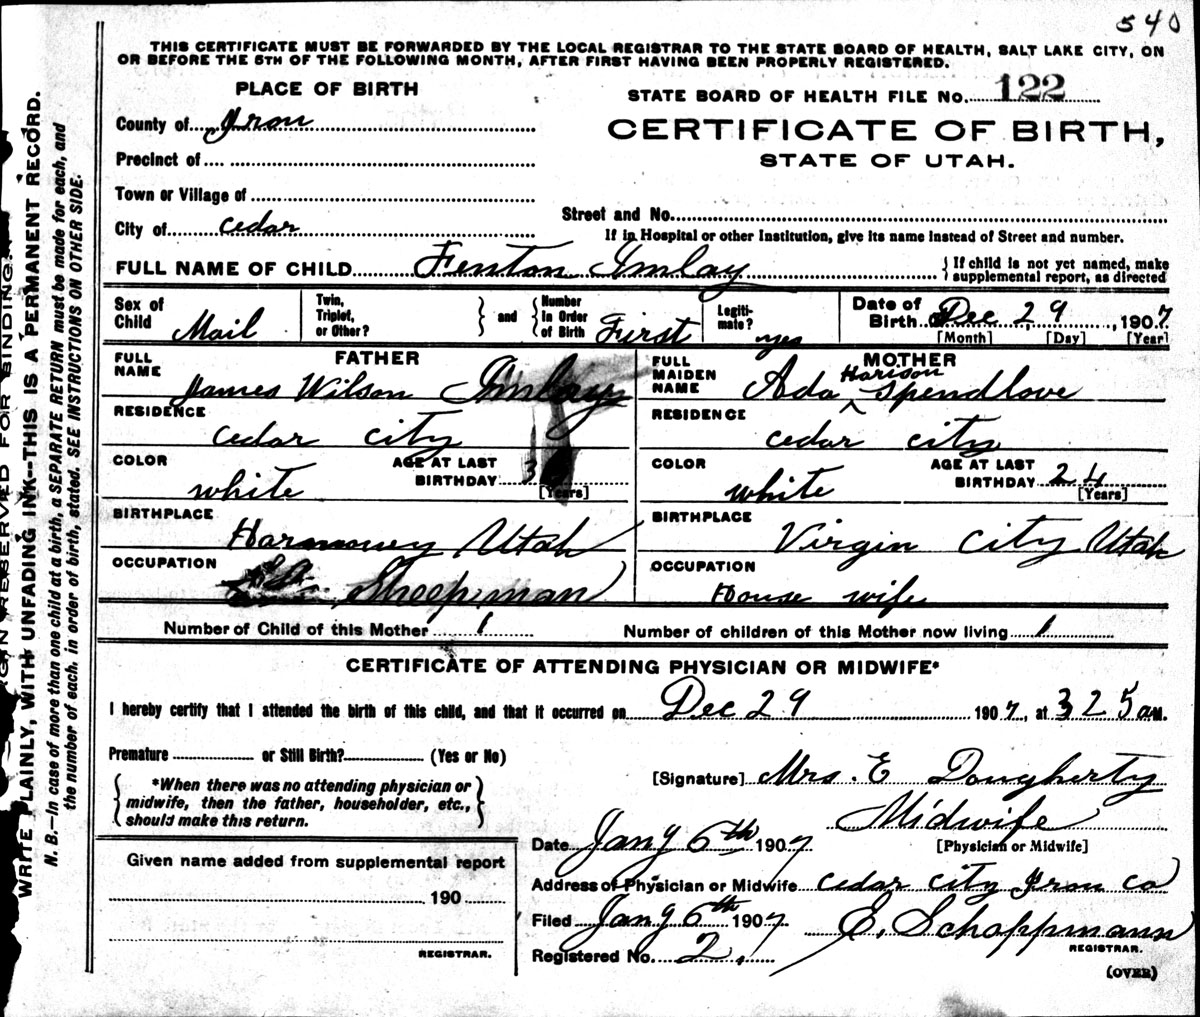 540
THIS CERTIFICATE MUST BE FORWARDED BY THE LOCAL REGISTRAR TO THE STATE BOARD OF HEALTH, SALT LAKE CITY, ON
OR BEFORE THE 5TH OF THE FOLLOWING MONTH, AFTER FIRST HAVING BEEN PROPERLY REGISTERED.
PLACE OF BIRTH
STATE BOARD OF HEALTH FILE No. 122
County of Iron
CERTIFICATE OF BIRTH,
Precinct of
STATE OF UTAH.
Town or Village of
Street and No.
City of cedar
If in Hospital or other Institution, give its name instead of Street and number.
FULL NAME OF CHILD Fenton Imlay { If child is not yet named, make supplemental report, as directed
Sex of Child Mail
Twin, Triplet, or Other? } and { Number In Order of Birth First
Legitimate? yes
Date of Birth Dec 29, 1907
[Month] [Day] [Year]
FATHER
FULL NAME James Wilson Imlay
RESIDENCE cedar city
COLOR white
AGE AT LAST BIRTHDAY 3
[Years]
BIRTHPLACE Harmoney Utah
OCCUPATION Sheepman
MOTHER
FULL MAIDEN NAME Ada Harison Spendlove
RESIDENCE cedar city
COLOR white
AGE AT LAST BIRTHDAY 24
[Years]
BIRTHPLACE Virgin City Utah
OCCUPATION House wife
Number of Child of this Mother 1
Number of children of this Mother now living 1
CERTIFICATE OF ATTENDING PHYSICIAN OR MIDWIFE*
I hereby certify that I attended the birth of this child, and that it occurred on Dec 29 1907, at 325 a M.
Premature or Still Birth? (Yes or No)
{ *When there was no attending physician or
midwife, then the father, householder, etc.,
should make this return. }
[Signature] Mrs. E Dougherty
Midwife
[Physician or Midwife]
Date Jany 6th 1907
Address of Physician or Midwife cedar city Iron co
Filed Jany 6th 1907 E. Schoppmann
REGISTRAR.
Registered No. 2.
(OVER)
Given name added from supplemental report
190
REGISTRAR.
RESERVED FOR BINDING.
WRITE PLAINLY, WITH UNFADING INK--THIS IS A PERMANENT RECORD.
N. B.—In case of more than one child at a birth, a SEPARATE RETURN must be made for each, and
the number of each. in order of birth, stated. SEE INSTRUCTIONS ON OTHER SIDE.